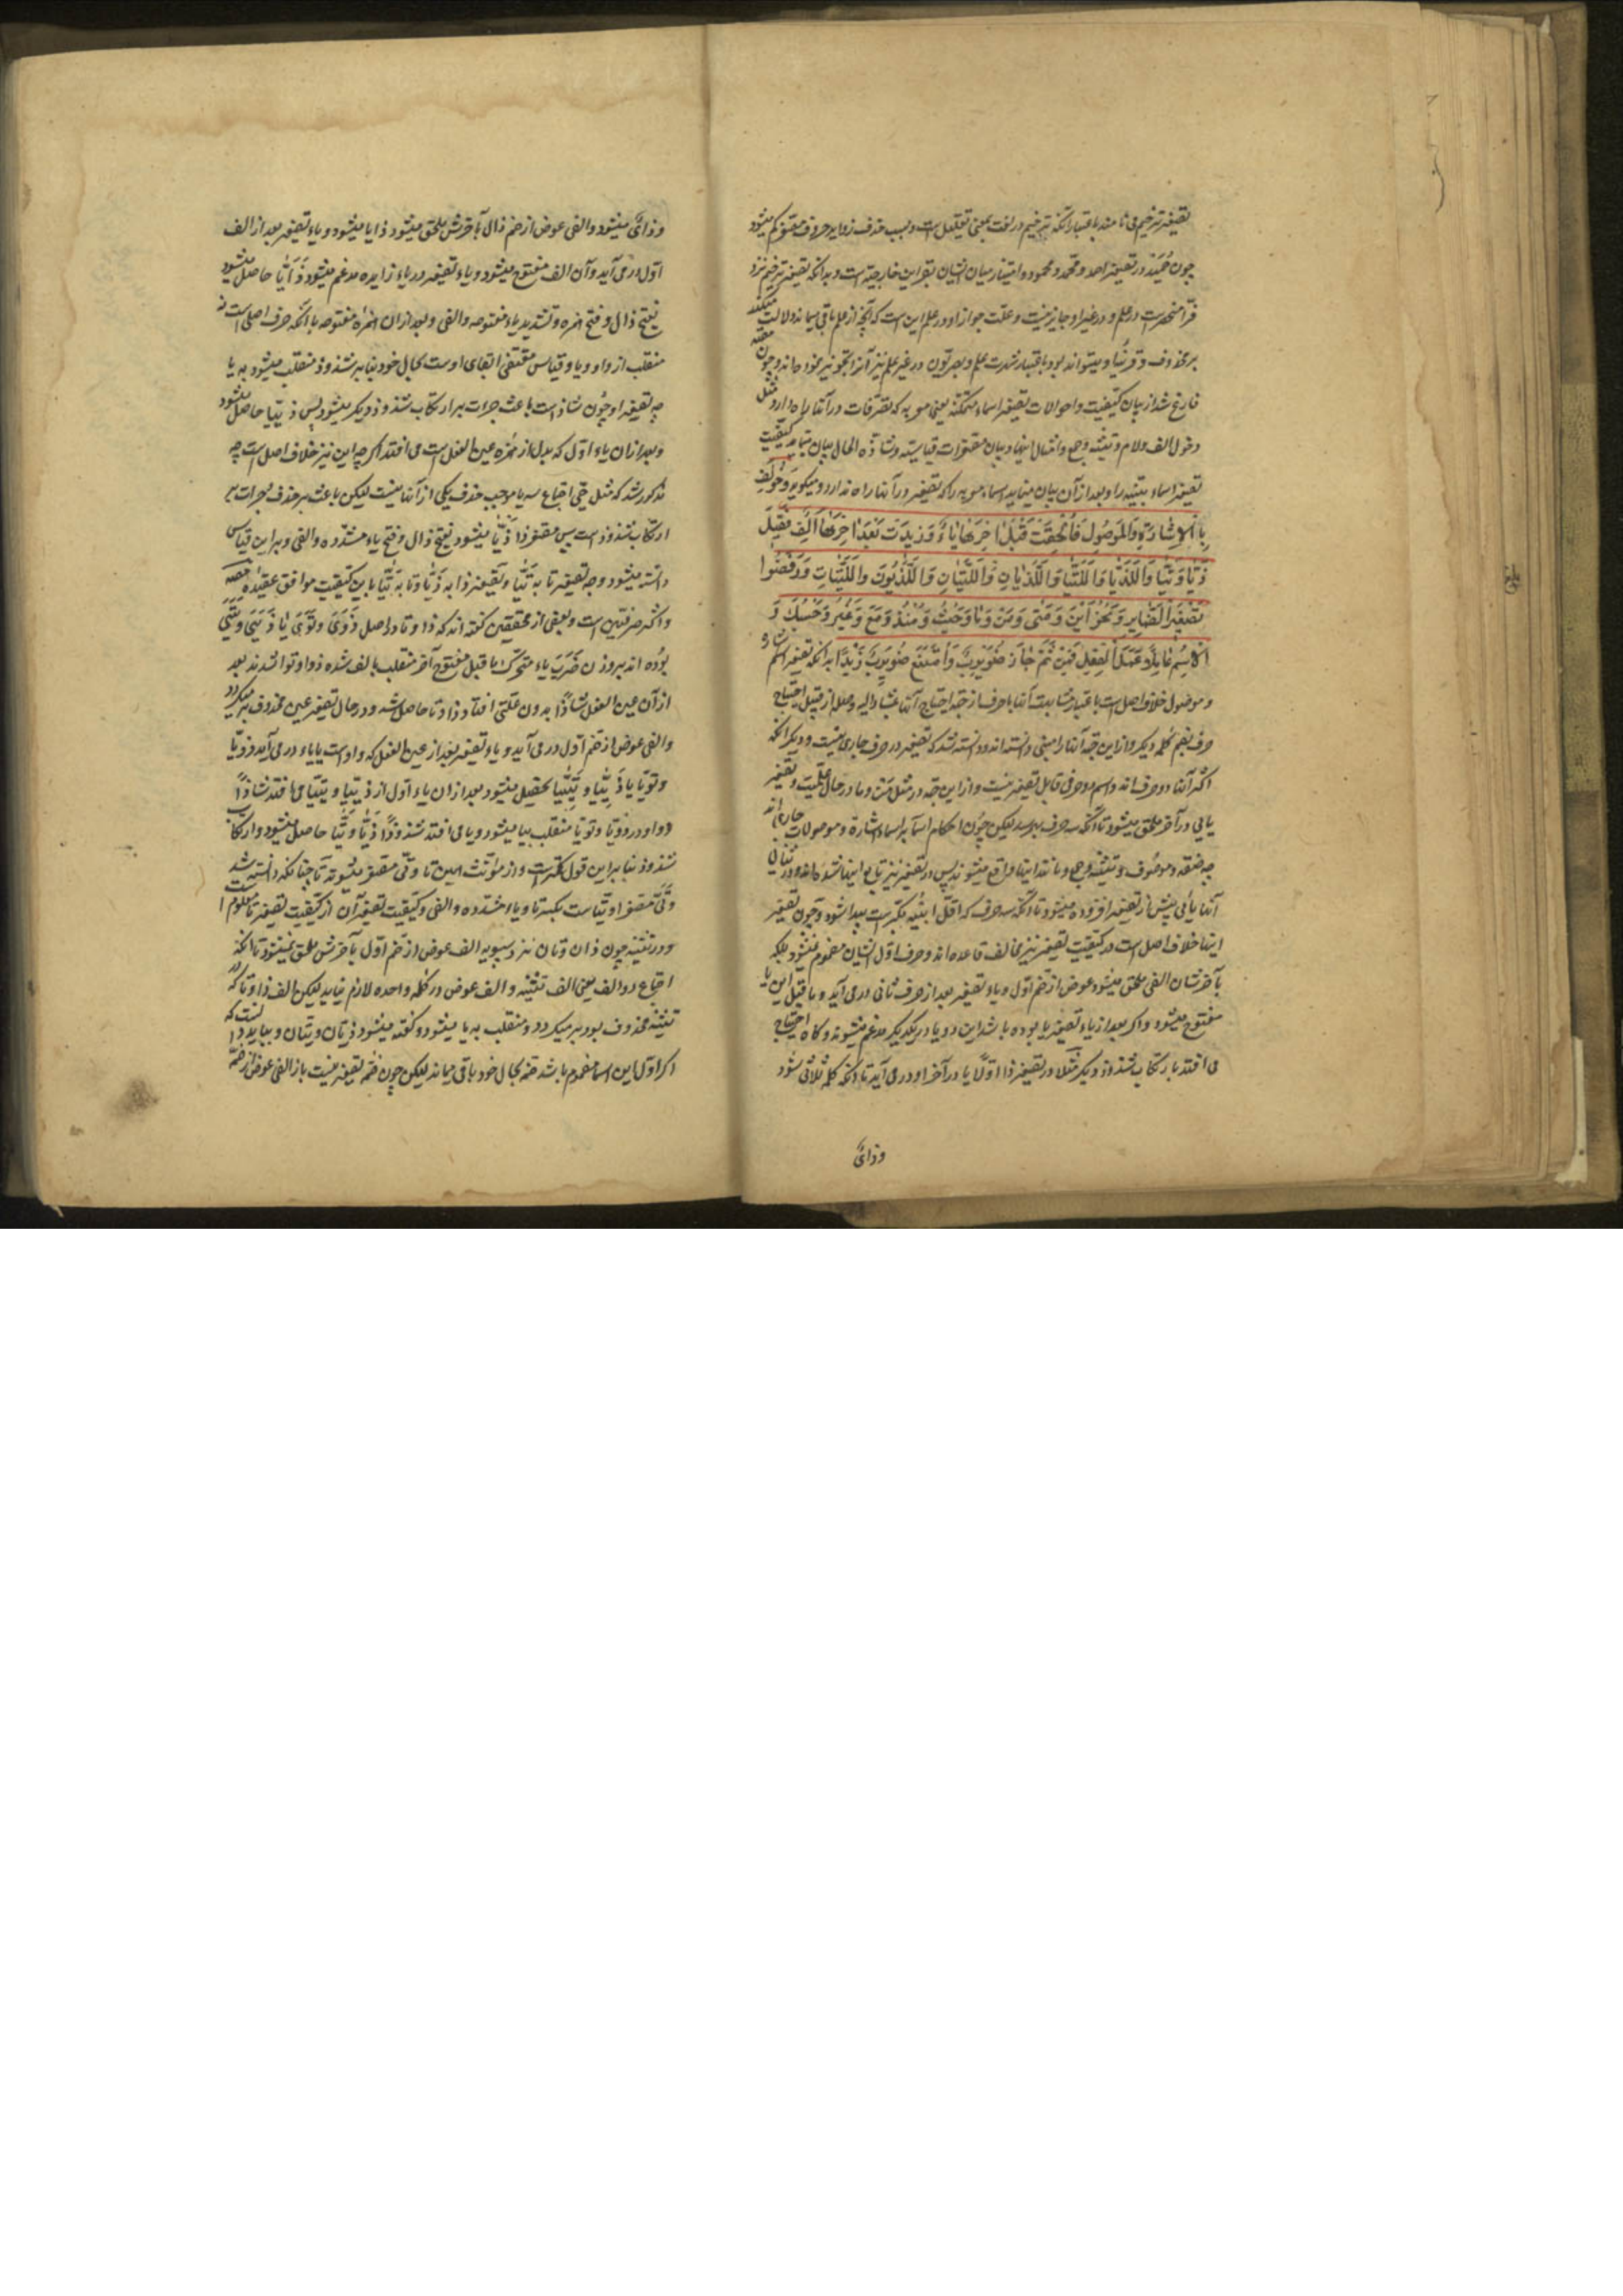 تصغیر ترخیم می‌نامند باعتبار آنکه ترخیم در لغت بمعنی تقلیل است و بسبب حذف زواید حروف مصغر کم میشود
چون حُمَید در تصغیر احمد و محمد و محمود و امتیاز میان ایشان بقراین خارجیّه است و بدانکه تصغیر ترخیم نزد
فرّا منحصر است در علم و در غیر او جایز نیست و علّت جواز او در علم این است که آنچه از علم باقی میماند دلالت میکند
بر محذوف و بصریّون در غیر علم نیز آنرا تجویز نموده‌اند و چون مصنف
فارغ شد از بیان کیفیت و احوالات تصغیر اسماء متمکنه یعنی معربه که تصرّفات در آنها راه دارد مثل
دخول الف و لام و تثنیه و جمع و امثال اینها و بیان مصغّرات قیاسیّه و شاذّه الحال بیان مینماید کیفیّت
تصغیر اسماء مبنیّه را و بعد از آن بیان مینماید اسماء معربه را که تصغیر در آنها راه ندارد و میگوید وَخُولِفَ
بِالاِشَارَةِ وَالمَوصُولِ فَاُلْحِقَتْ قَبْلَ اٰخِرِهَا یَاءٌ وَ زِیدَتْ بَعْدَ اٰخِرِهَا اَلِفٌ فَقِیلَ
ذَیَّا وَ تَیَّا وَ اَللَّذَیَّا وَ اَللَّتَیَّا وَ اَللَّذَیَّانِ وَ اَللَّتَیَّانِ وَ اَللَّذَیُّونَ وَ اَللَّتَیَّاتِ وَ رَفَضُوا
تَصْغِیرَ الضَّمَایِرِ وَ نَحْوُ اَیْنَ وَ مَتٰی وَ مَنْ وَ مَا وَ حَیْثُ وَ مُنْذُ وَ مَعَ وَ غَیْرُ وَ حَسْبُکَ وَ
اَلاِسْمِ عَامِلًا عَمَلَ الْفِعْلِ فَمِنْ ثَمَّ جَازَ ضُوَیْرِبُ زَیْدٍ وَ امْتَنَعَ ضُوَیْرِبٌ زَیْدًا بدانکه تصغیر اسم اشاره
و موصول خلاف اصل است باعتبار مشابهت آنها با حرف از جهة احتیاج آنها بمشار الیه و صله از قبیل احتیاج
حرف بضم کلمه دیگر و از این جهة آنها را مبنی دانسته‌اند و دانسته شد که تصغیر در حرف جاری نیست و دیگر آنکه
اکثر آنها دو حرف‌اند و اسم دو حرفی قابل تصغیر نیست و از این جهة در مثل مَنْ و ما در حال علمیّت و تصغیر
یایی در آخر ملحق میشود تا آنکه سه حرف بهم رسد لیکن چون احکام اسماء بر اسماء اشارة و موصولات جاری‌اند
چه صفة و موصوف و تثنیه و جمع و مانند اینها واقع میشوند پس در تصغیر نیز تابع اینها شده‌اند و در
آنها یائی پیش از تصغیر افزوده میشود تا آنکه سه حرف که اقلّ ابنیه مکبّر است پیدا شود و چون تصغیر
اینها خلاف اصل است در کیفیّت تصغیر نیز مخالف قاعده‌اند و حرف اوّل ایشان مضموم نمیشود بلکه
بآخرشان الفی ملحق میشود عوض از ضم اوّل و یاء تصغیر بعد از حرف ثانی در می‌آید و ما قبل این یا
مفتوح میشود و اگر بعد از یاء تصغیر یا بوده باشد این دو یا در یکدیگر مدغم میشوند و گاه احتیاج
می‌افتد بارتکاب شذوذ دیگر مثلا در تصغیر ذا اوّلًا یا در آخر او در می‌آید تا آنکه کلمه ثلاثی شود
وذائ
وذائ میشود و الفی عوض از ضم ذال بآخرش ملحق میشود ذایا میشود و یاء تصغیر بعد از الف
اوّل در می‌آید و آن الف مفتوح میشود و یاء تصغیر در یاء زایده مدغم میشود ذَاَیَّا حاصل میشود
بفتح ذال و فتح همزه و تشدید یاء مفتوحه و الفی و بعد از آن همزه مفتوحه با آنکه حرف اصلی است نه
منقلب از واو و یا و قیاس مقتضی ابقای اوست بحال خود بنابر شذوذ منقلب میشود به یا
چه تصغیر او چون شاذ است باعث جرات بر ارتکاب شذوذ دیگر میشود پس ذَیَیَّا حاصل میشود
و بعد از آن یاء اوّل که بدل از همزه عین الفعل است می‌افتد اگر چه این نیز خلاف اصل است چه
مذکور شد که مثل حیّ اجتماع سه یا موجب حذف یکی از آنها نیست لیکن باعث بر حذف جرات بر
ارتکاب شذوذ است پس مصغر ذا ذَیَّا میشود بفتح ذال و فتح یاء مشدّده و الفی و بر این قیاس
دانسته میشود وجه تصغیر تا به تَیَّا و تصغیر ذا به ذَیَّا و تا به تَیَّا باین کیفیت موافق عقیده مصنّف
و اکثر صرفیّین است و بعضی از محققین گفته‌اند که ذا و تا در اصل ذَوَیَ و تَوَیَ یا ذَیَیَ و تَیَیَ
بوده‌اند بر وزن ضَرَبَ یاء متحرک ما قبل مفتوح آخر منقلب بالف شده ذوا و توا شدند بعد
از آن عین الفعل شاذًا بدون علّتی افتاد ذا و تا حاصل شد و در حال تصغیر عین محذوف بر میگردد
و الفی عوض از ضم اوّل در می‌آید و یاء تصغیر بعد از عین الفعل که واو است یا یاء در می‌آید ذوَیّا
و تویّا یا ذَیَیَّا و تَیَیَّا تحصیل میشود بعد از آن یاء اوّل از ذییّا و تییّا می‌افتد شاذًا
و واو در ذویّا و تویّا منقلب بیا میشود و یا می‌افتد شذوذًا ذَیَّا و تَیَّا حاصل میشود و ارتکاب
شذوذ بنابر این قول کمتر است و از مؤنّث همین تا و تی مصغّر میشوند تا چنانکه دانسته شد
و تی مصغر او تیّاست بکسر تا و یاء مشدّده و الفی و کیفیت تصغیر آن از کیفیت تصغیر تا معلوم است
و در تثنیه چون ذان و تان نزد سیبویه الف عوض از ضم اوّل بآخرش ملحق نمیشود تا آنکه
اجتماع دو الف یعنی الف تثنیه و الف عوض در کلمه واحده لازم نیاید لیکن الف ذا و تا که در
تثنیه محذوف بود بر میگردد و منقلب به یا میشود و گفته میشود ذیّان و تیّان و بباید دانست که
اگر اوّل این اسما مضموم باشد ضمّه بحال خود باقی میماند لیکن چون ضمّه تصغیر نیست باز الفی عوض از ضمّه